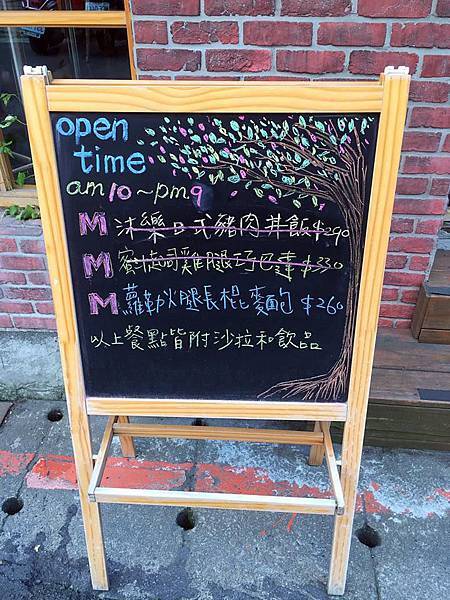 open
time
am 10~pm 9
M 沐樂日式豬肉丼飯 $290
M 蜜惦司雞腿巧巴達 $330
M 蘿勒火腿長棍麵包 $260
以上餐點皆附沙拉和飲品